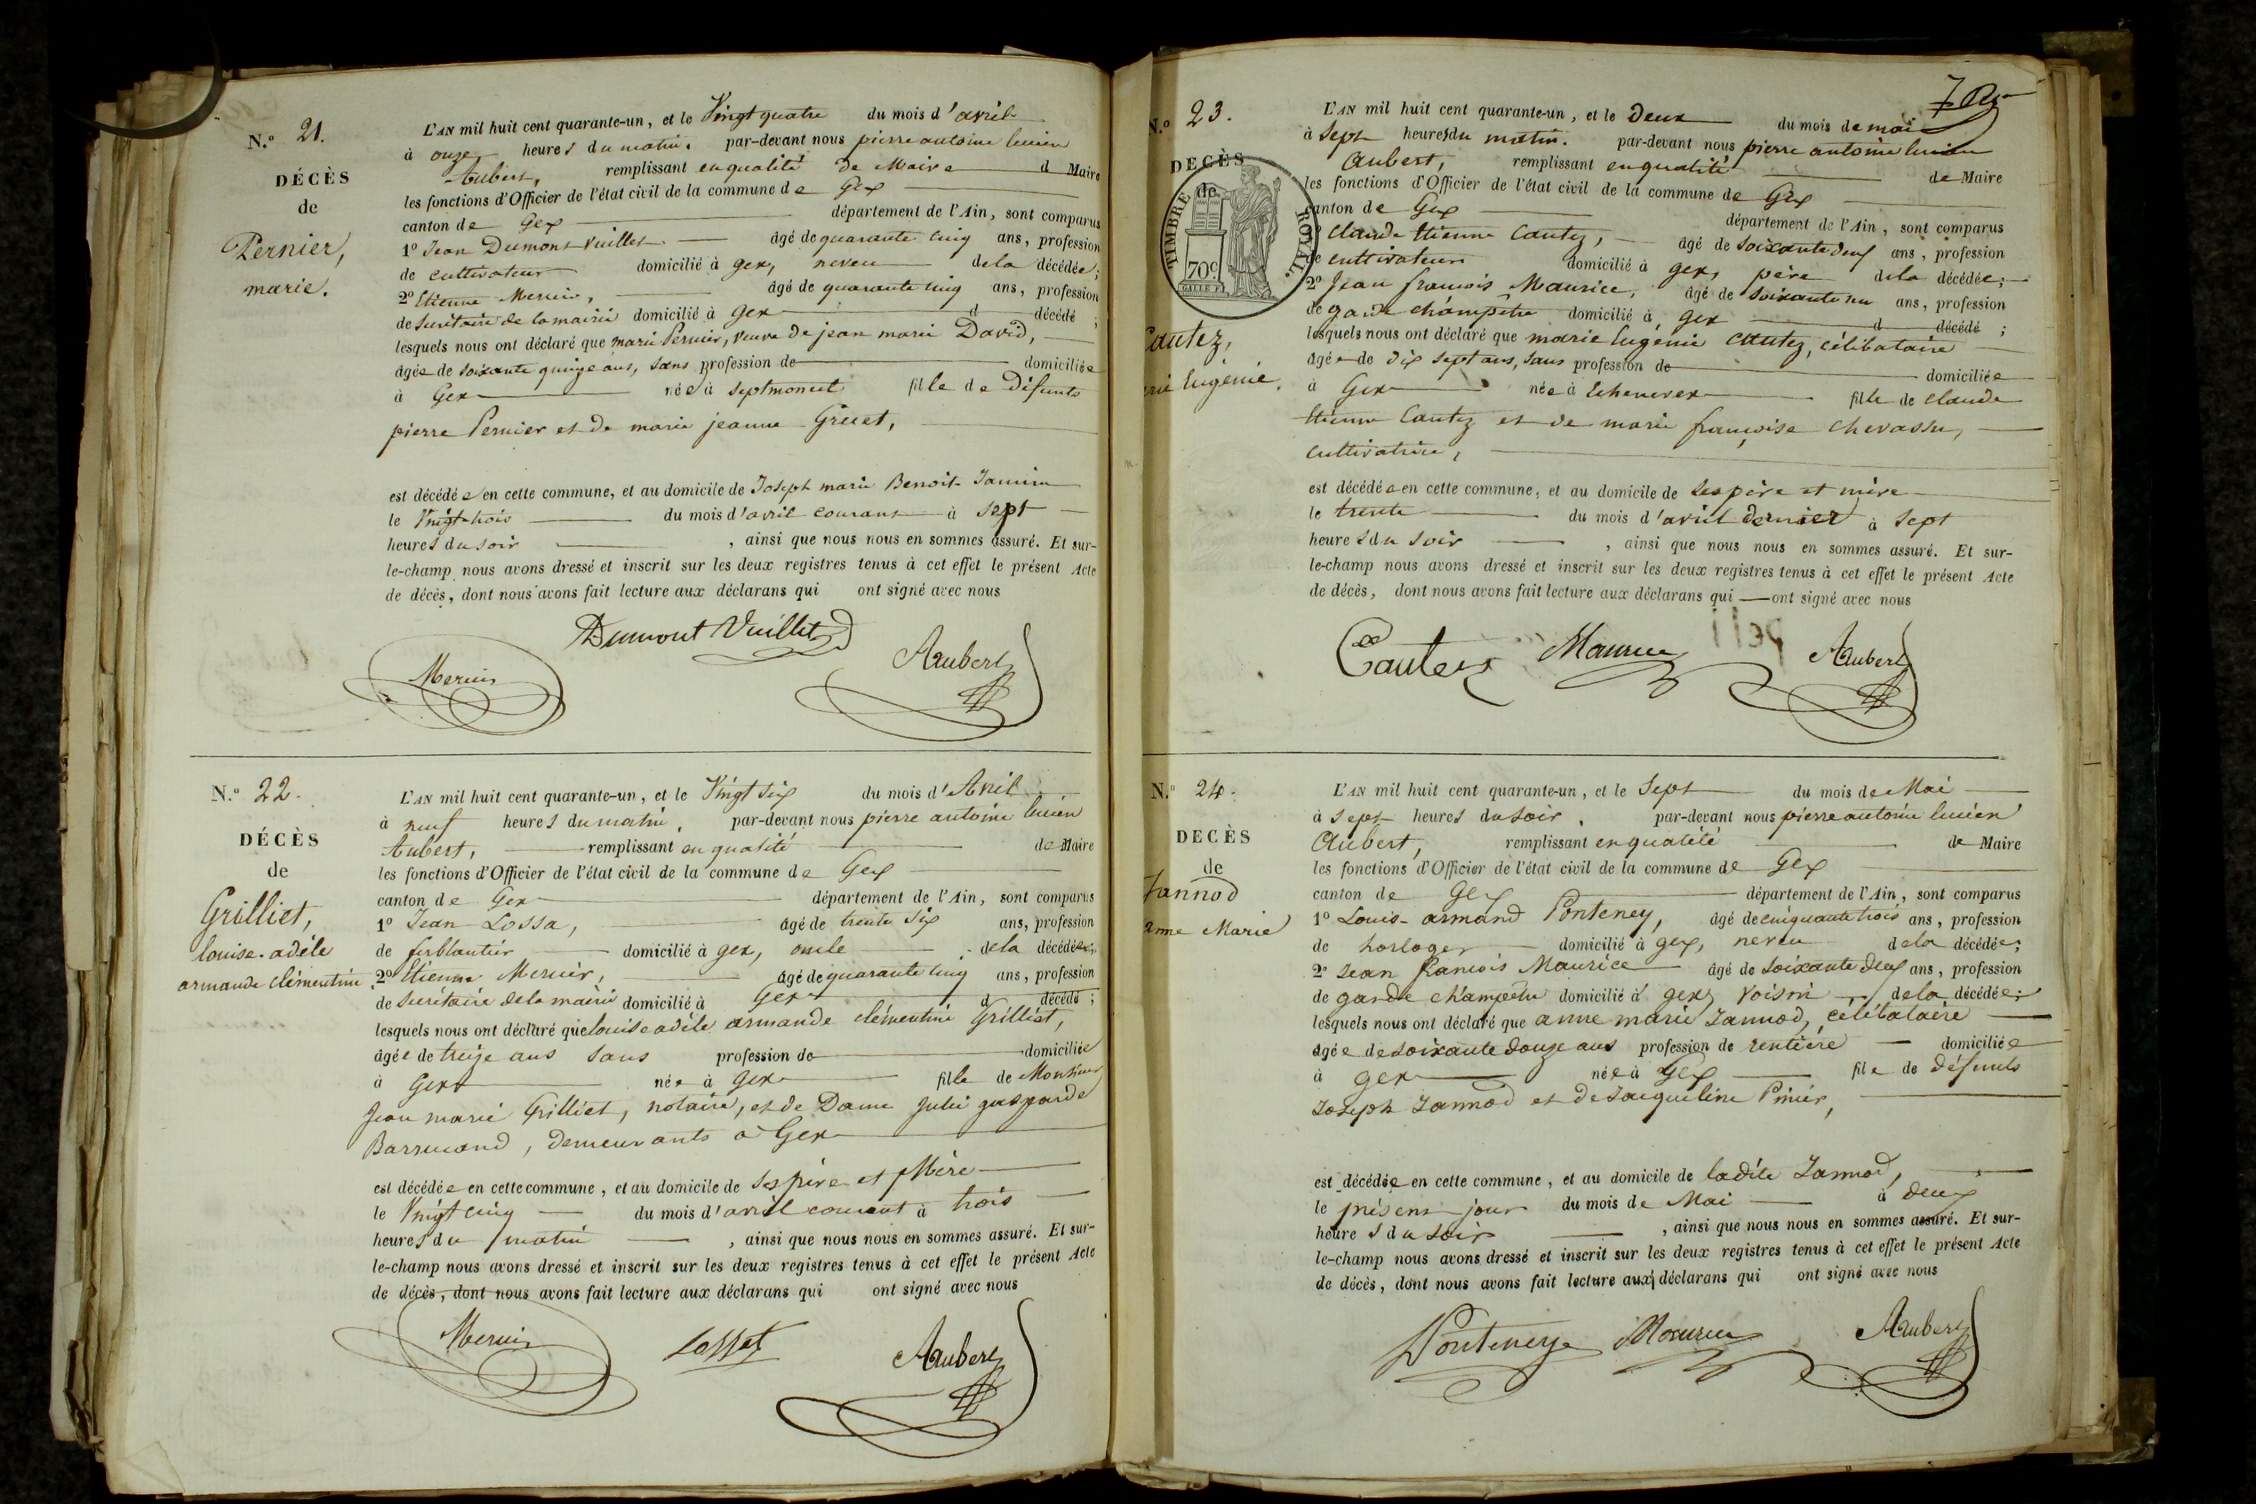 N.º 21.
DÉCÈS
de
Pernier,
marie.
L'AN mil huit cent quarante-un, et le Vingt quatre du mois d'avril
à onze heures du matin. par-devant nous pierre antoine lucien
Aubert, remplissant en qualité de Maire d Maire
les fonctions d'Officier de l'état civil de la commune de Gex
canton de Gex département de l'Ain, sont comparus
1º Jean Dumont Vuillet âgé de quarante cinq ans, profession
de cultivateur domicilié à gex, neveu de la décédée;
2º Etienne Mercier, âgé de quarante cinq ans, profession
de Secrétaire de la mairie domicilié à Gex d décédé;
lesquels nous ont déclaré que marie Pernier, veuve de jean marie David,
âgée de soixante quinze ans, sans profession de domiciliée
à Gex née à septmoncel fille de Défunts
pierre Pernier et de marie jeanne Grecet,
est décédée en cette commune, et au domicile de Joseph marie Benoit Jannin
le Vingt-trois du mois d'avril courant à sept
heures du soir, ainsi que nous nous en sommes assuré. Et sur-
le-champ nous avons dressé et inscrit sur les deux registres tenus à cet effet le présent Acte
de décès, dont nous avons fait lecture aux déclarans qui ont signé avec nous
Dumont Vuillet
Mercier Aubert
N.º 22.
DÉCÈS
de
Grilliet,
louise-adèle
armande clémentine.
L'AN mil huit cent quarante-un, et le Vingt six du mois d'Avril
à neuf heures du matin, par-devant nous pierre antoine lucien
Aubert, remplissant en qualité de Maire
les fonctions d'Officier de l'état civil de la commune de Gex
canton de Gex département de l'Ain, sont comparus
1º Jean Lossa, âgé de trente six ans, profession
de ferblantier domicilié à gex, oncle de la décédée;
2º Etienne Mercier, âgé de quarante cinq ans, profession
de Secrétaire de la mairie domicilié à Gex d décédé;
lesquels nous ont déclaré que louise adèle armande clémentine Grilliet,
âgée de treize ans sans profession de domiciliée
à Gex née à gex fille de Monsieur
Jean marie Grilliet, notaire, et de Dame Julie gasparde
Barrucand, demeurants à Gex
est décédée en cette commune, et au domicile de ses père et Mère
le Vingt cinq du mois d'avril courant à trois
heures du matin, ainsi que nous nous en sommes assuré. Et sur-
le-champ nous avons dressé et inscrit sur les deux registres tenus à cet effet le présent Acte
de décès, dont nous avons fait lecture aux déclarans qui ont signé avec nous
Mercier Lossat Aubert
N.º 23.
DECÈS
de
TIMBRE ROYAL.
70c.
Cautez,
Eugénie.
L'AN mil huit cent quarante-un, et le Deux du mois de mai
à Sept heures du matin. par-devant nous pierre antoine lucien
Aubert, remplissant en qualité de Maire
les fonctions d'Officier de l'état civil de la commune de Gex
canton de Gex département de l'Ain, sont comparus
claude Etienne Cautez, âgé de soixante deux ans, profession
de cultivateur domicilié à gex, père de la décédée;
2º Jean françois Maurice, âgé de soixante un ans, profession
de garde champêtre domicilié à gex d décédé;
lesquels nous ont déclaré que marie Eugénie Cautez, célibataire
âgée de dix sept ans, sans profession de domiciliée
à Gex née à Echenevex fille de claude
Etienne Cautez et de marie françoise chevassu,
cultivatrice,
est décédée en cette commune, et au domicile de ses père et mère
le trente du mois d'avril dernier à sept
heures du soir, ainsi que nous nous en sommes assuré. Et sur-
le-champ nous avons dressé et inscrit sur les deux registres tenus à cet effet le présent Acte
de décès, dont nous avons fait lecture aux déclarans qui ont signé avec nous
Cautez Maurice Aubert
N.º 24.
DECÈS
de
Jannod
anne Marie
L'AN mil huit cent quarante-un, et le Sept du mois de Mai
à sept heures du soir, par-devant nous pierre antoine lucien
Aubert, remplissant en qualité de Maire
les fonctions d'Officier de l'état civil de la commune de Gex
canton de Gex département de l'Ain, sont comparus
1º Louis-armand Ponteney, âgé de cinquante trois ans, profession
de horloger domicilié à gex, neveu de la décédée;
2º Jean françois Maurice âgé de soixante deux ans, profession
de garde champêtre domicilié à gex, voisin de la décédée;
lesquels nous ont déclaré que anne marie Jannod, célibataire
âgée de soixante douze ans profession de rentière domiciliée
à gex née à Gex file de défunts
Joseph Jannod et de Jacqueline Pinier,
est décédée en cette commune, et au domicile de ladite Jannod,
le présent jour du mois de Mai à deux
heures du soir, ainsi que nous nous en sommes assuré. Et sur-
le-champ nous avons dressé et inscrit sur les deux registres tenus à cet effet le présent Acte
de décès, dont nous avons fait lecture aux déclarans qui ont signé avec nous
Ponteney Maurice Aubert